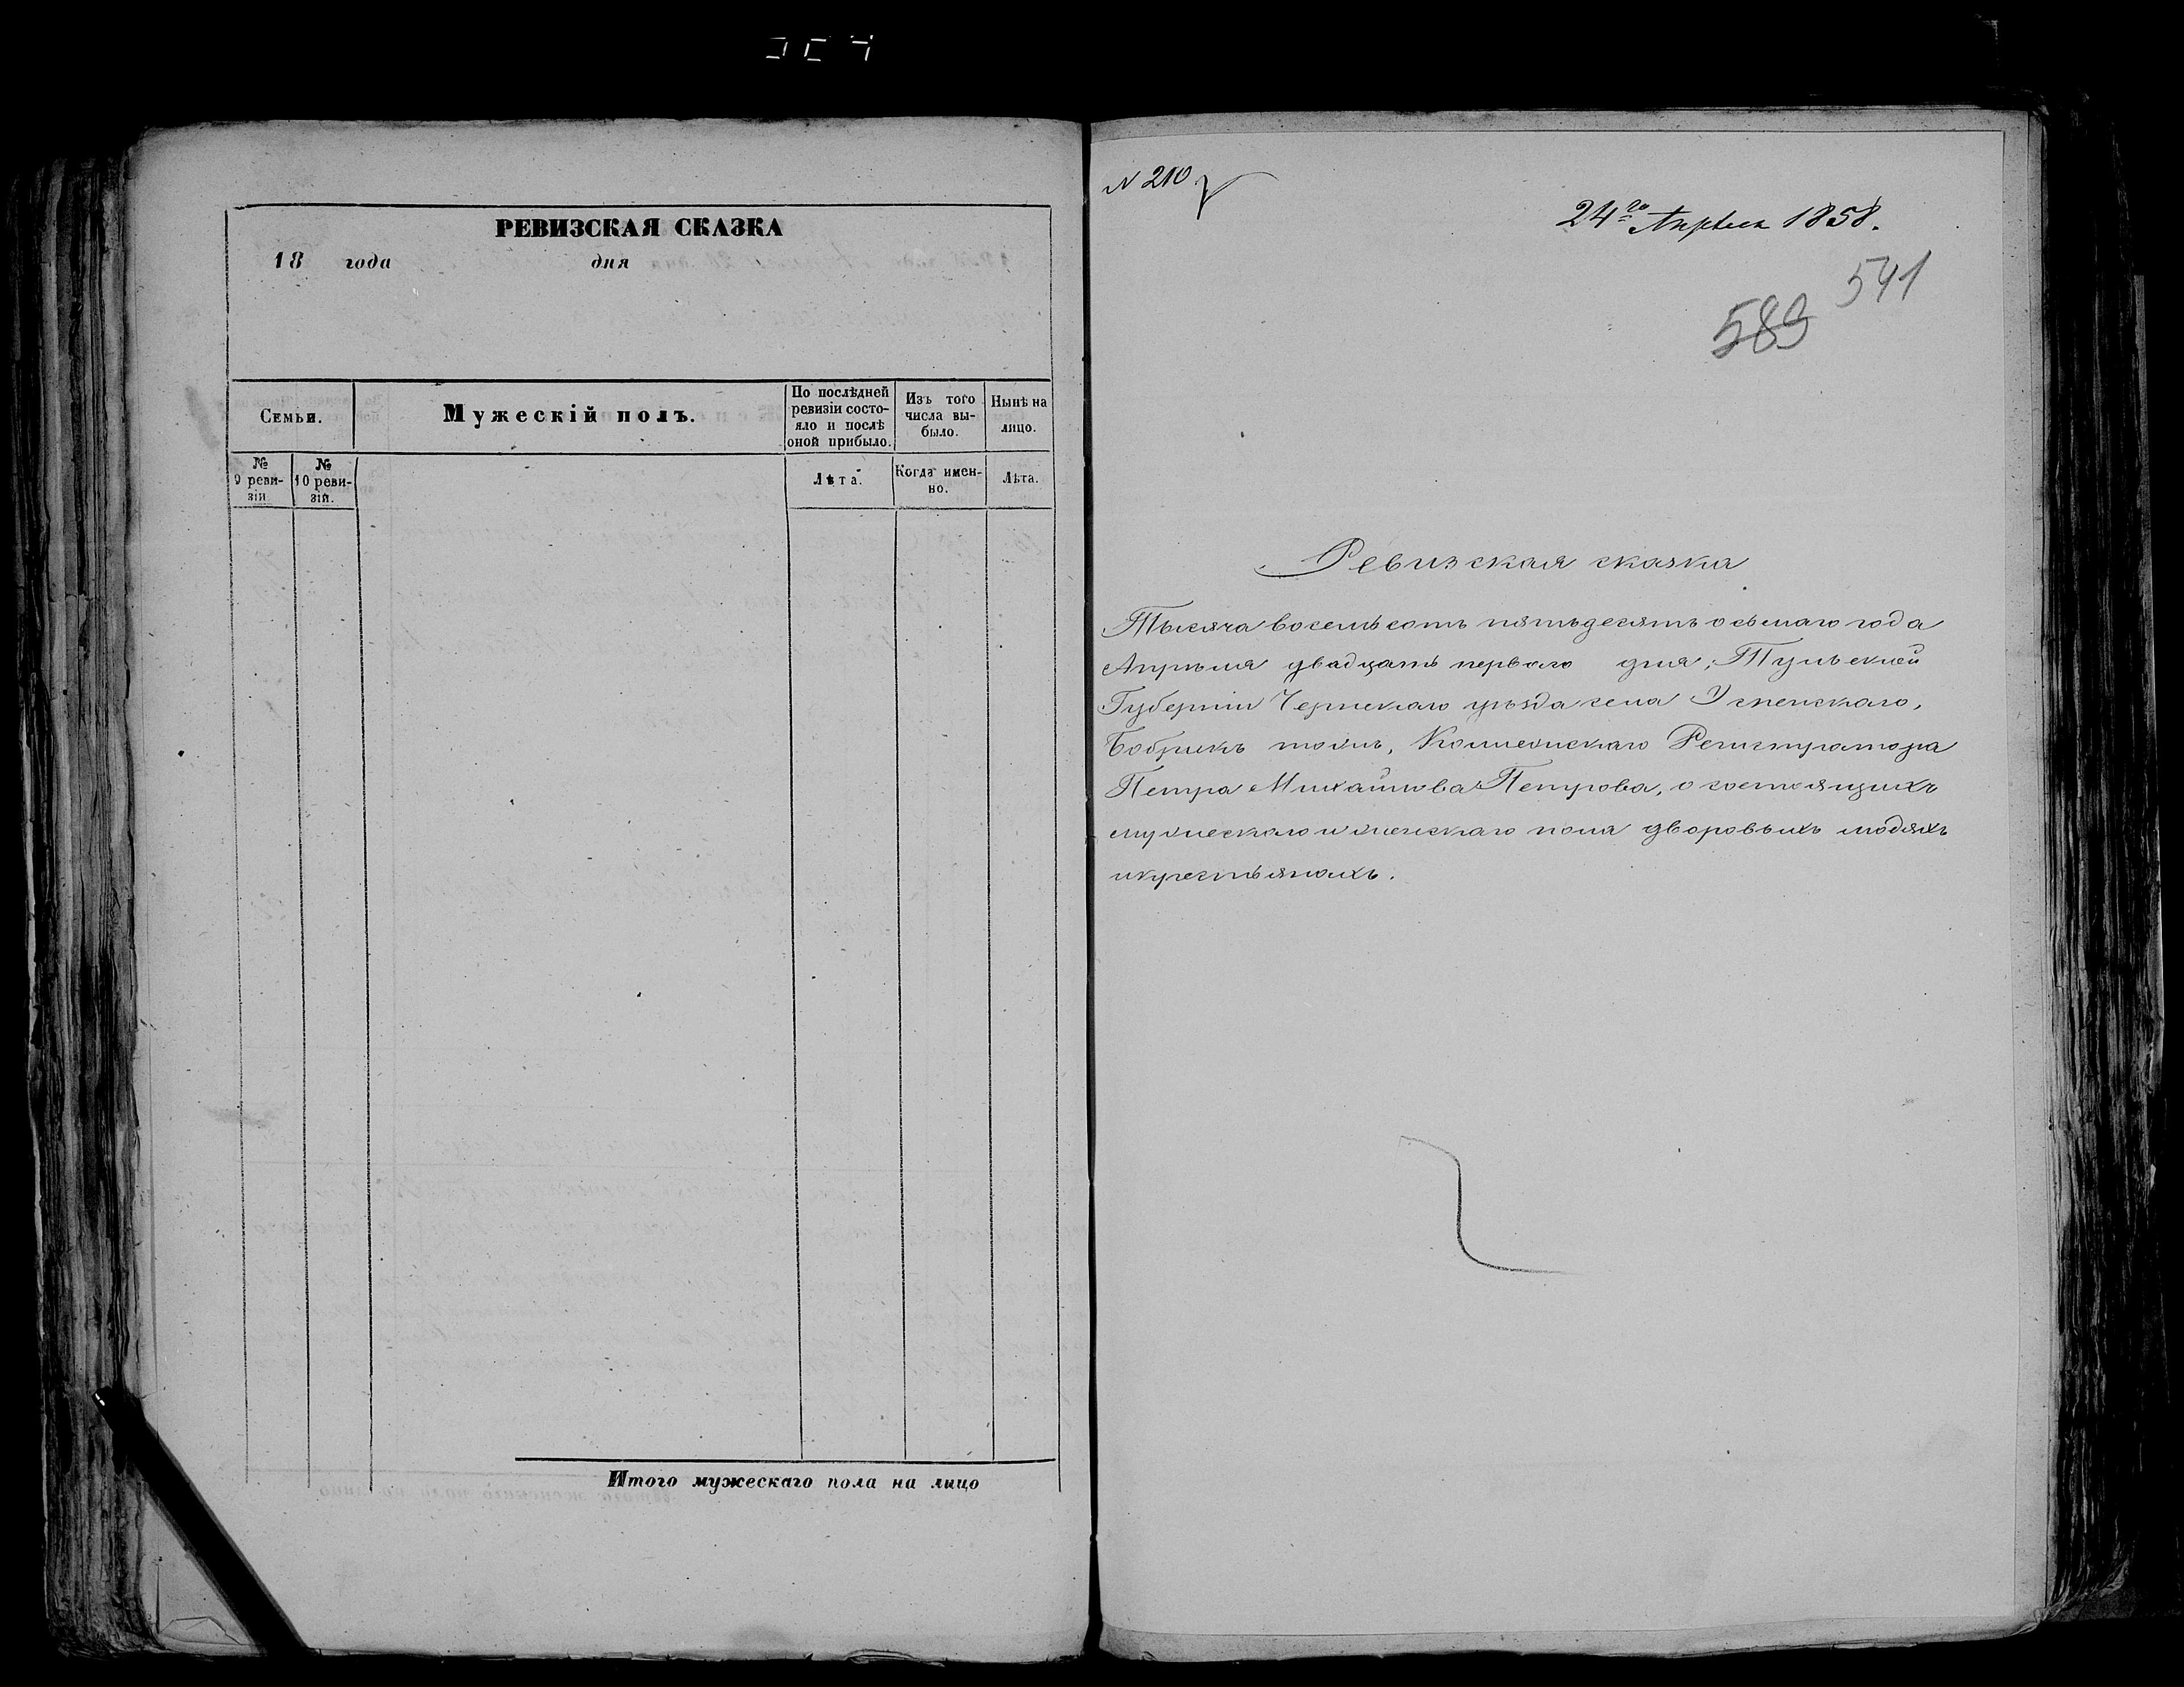 РЕВИЗСКАЯ СКАЗКА
18 года дня
Семьи.
Мужескій полъ.
По послѣдней
ревизіи состо-
яло и послѣ
оной прибыло.
Изъ того
числа вы-
было.
Нынѣ на
лицо.
№
9 реви-
зіи
№
10 реви-
зіи.
Лѣта.
Когда имен-
но.
Лѣта.
Итого мужескаго пола на лицо
N 210
24го Апрѣля 1858.
541
589
Ревизская сказка
Тысяча восемьсотъ пятьдесятъ осьмаго года
Апрѣля двадцать перваго дня, Тульской
Губерніи Чернскаго уѣзда села Успенскаго,
Бобрикъ тожъ, Коллежскаго Регистратора
Петра Михайлова Петрова, о состоящихъ
мужескаго и женскаго пола дворовыхъ людяхъ
и крестьянахъ.